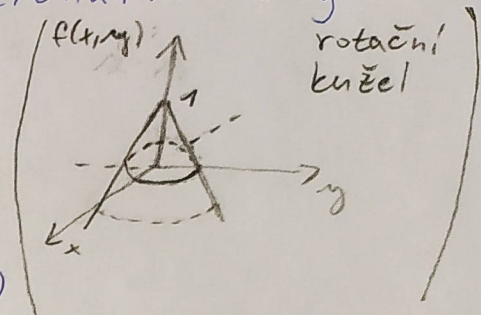 f(x,y)
rotační
kužel
1
y
x